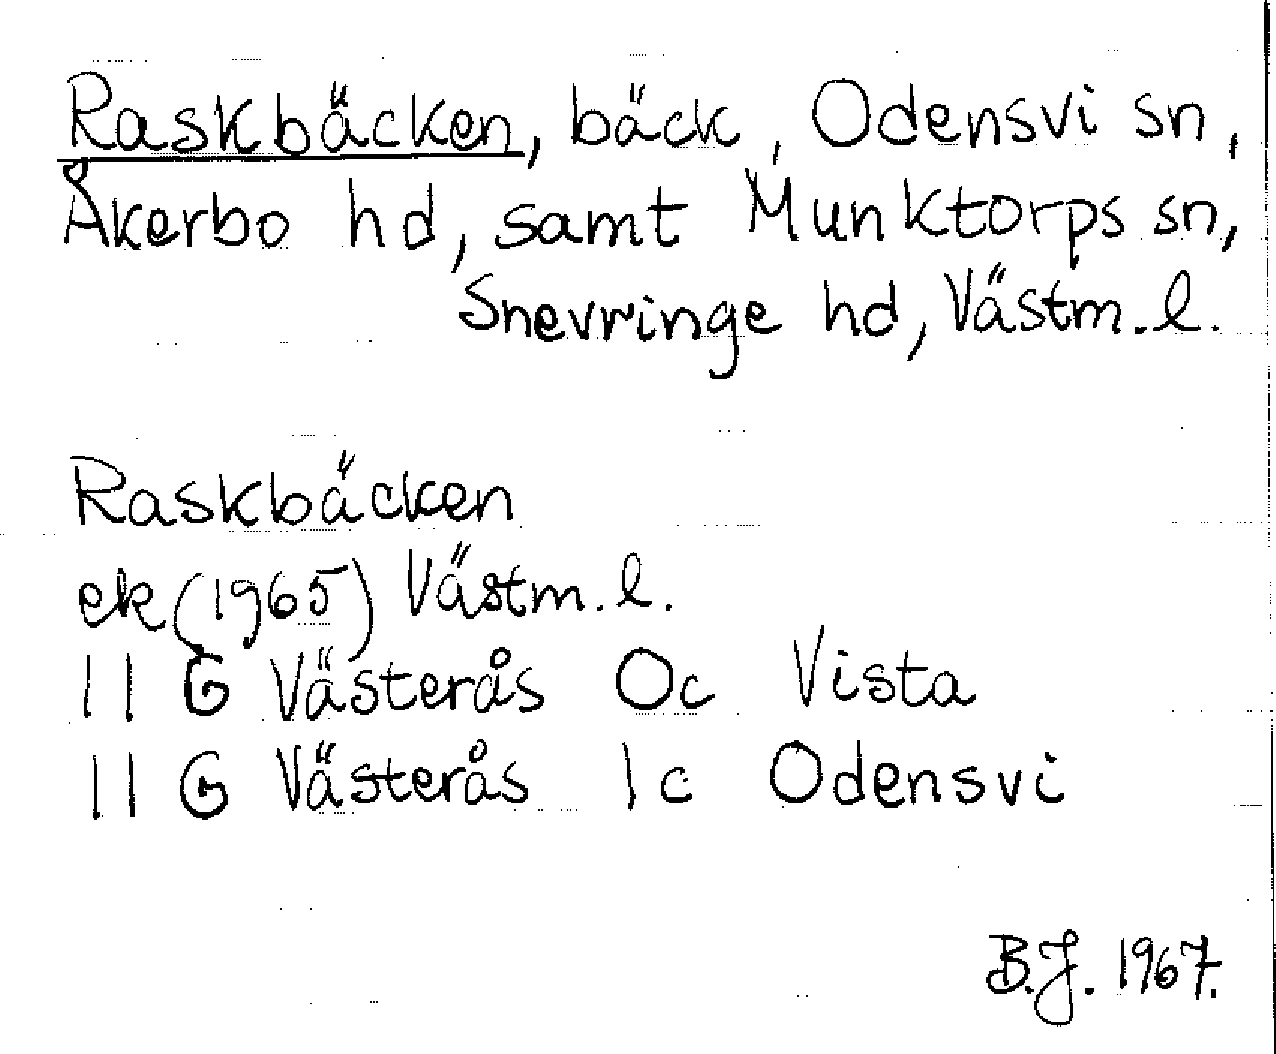 Raskbäcken, bäck, Odensvi sn,
Åkerbo hd, samt Munktorps sn,
Snevringe hd, Västm. l.
Raskbäcken
ek (1965) Västm. l.
11 G Västerås Oc Vista
11 G Västerås 1c Odensvi
B.J. 1967.